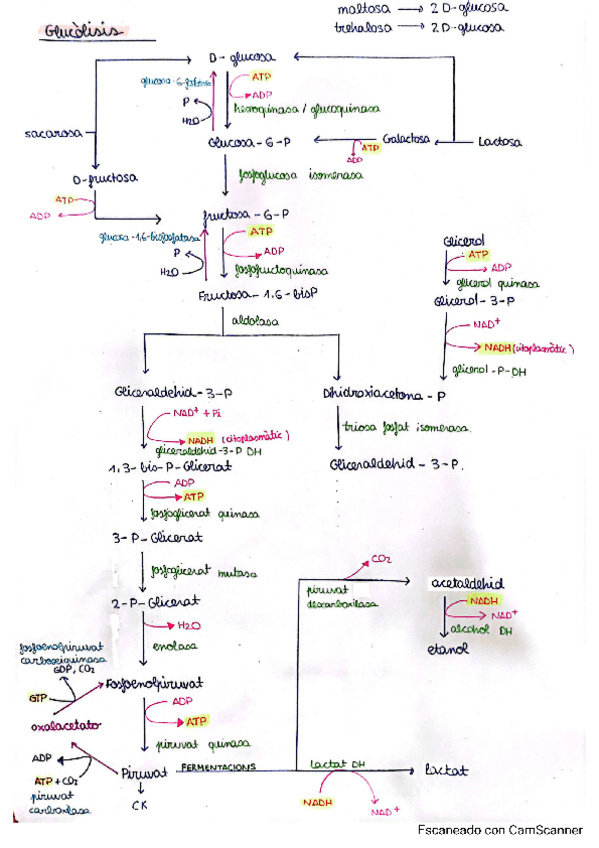 maltosa → 2 D-glucosa
trehalosa → 2 D-glucosa
Glucòlisis
D-glucosa
glucosa-6-fosfatasa
ATP
ADP
P
H2O
hexoquinasa / glucoquinasa
sacarosa
Glucosa-6-P
Galactosa
Lactosa
ATP
ADP
fosfoglucosa isomerasa
D-fructosa
ATP
ADP
fructosa-6-P
ATP
ADP
P
H2O
fosfofructoquinasa
Fructosa-1,6-bisP
aldolasa
Glicerol
ATP
ADP
glicerol quinasa
Glicerol-3-P
NAD+
NADH (citoplasmàtic)
glicerol-P-DH
Gliceraldehid-3-P
NAD+ + Pi
NADH (citoplasmàtic)
gliceraldehid-3-P DH
Dihidroxiacetona-P
triosa fosfat isomerasa
Gliceraldehid-3-P.
1,3-bis-P-Glicerat
ADP
ATP
fosfoglicerat quinasa
3-P-Glicerat
fosfoglicerat mutasa
2-P-Glicerat
H2O
enolasa
CO2
piruvat
descarboxilasa
acetaldehid
NADH
NAD+
alcohol DH
etanol
fosfoenolpiruvat
carboxiquinasa
GDP, CO2
GTP
Fosfoenolpiruvat
ADP
ATP
piruvat quinasa
oxalacetato
ADP
ATP + CO2
piruvat
carboxilasa
Piruvat
FERMENTACIONS
Lactat DH
lactat
NADH
NAD+
CK
Escaneado con CamScanner